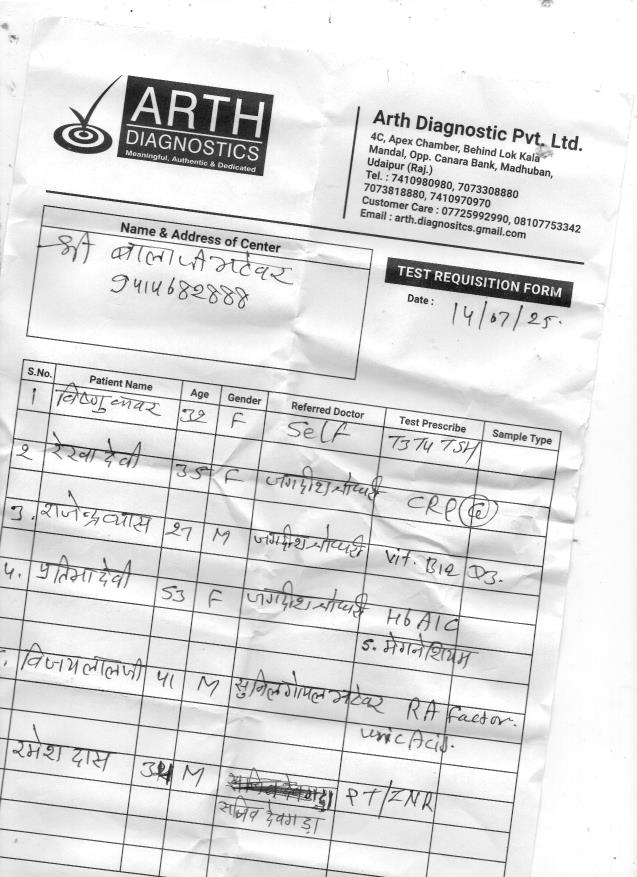 ARTH
DIAGNOSTICS
Meaningful, Authentic & Dedicated
Arth Diagnostic Pvt. Ltd.
4C, Apex Chamber, Behind Lok Kala
Mandal, Opp. Canara Bank, Madhuban,
Udaipur (Raj.)
Tel. : 7410980980, 7073308880
7073818880, 7410970970
Customer Care : 07725992990, 08107753342
Email : arth.diagnositcs.gmail.com
Name & Address of Center
श्री बालाजी भटेवर
9414682888
TEST REQUISITION FORM
Date : 14/07/25.
S.No. Patient Name Age Gender Referred Doctor Test Prescribe Sample Type
1 विष्णु कंवर 32 F Self T3T4 TSH
2 रेखा देवी 35 F जगदीश चौधरी CRP
3. राजेन्द्र व्यास 27 M जगदीश चौधरी Vit. B12 D3.
4. प्रतिमा देवी 53 F जगदीश चौधरी HbA1C
S. मेगनेशियम
विजयलालजी 41 M सुनिल गोपाल भटेवर RA factor.
Uric Acid.
रमेश दास 34 M PT/INR
सजिव देवगड़ा